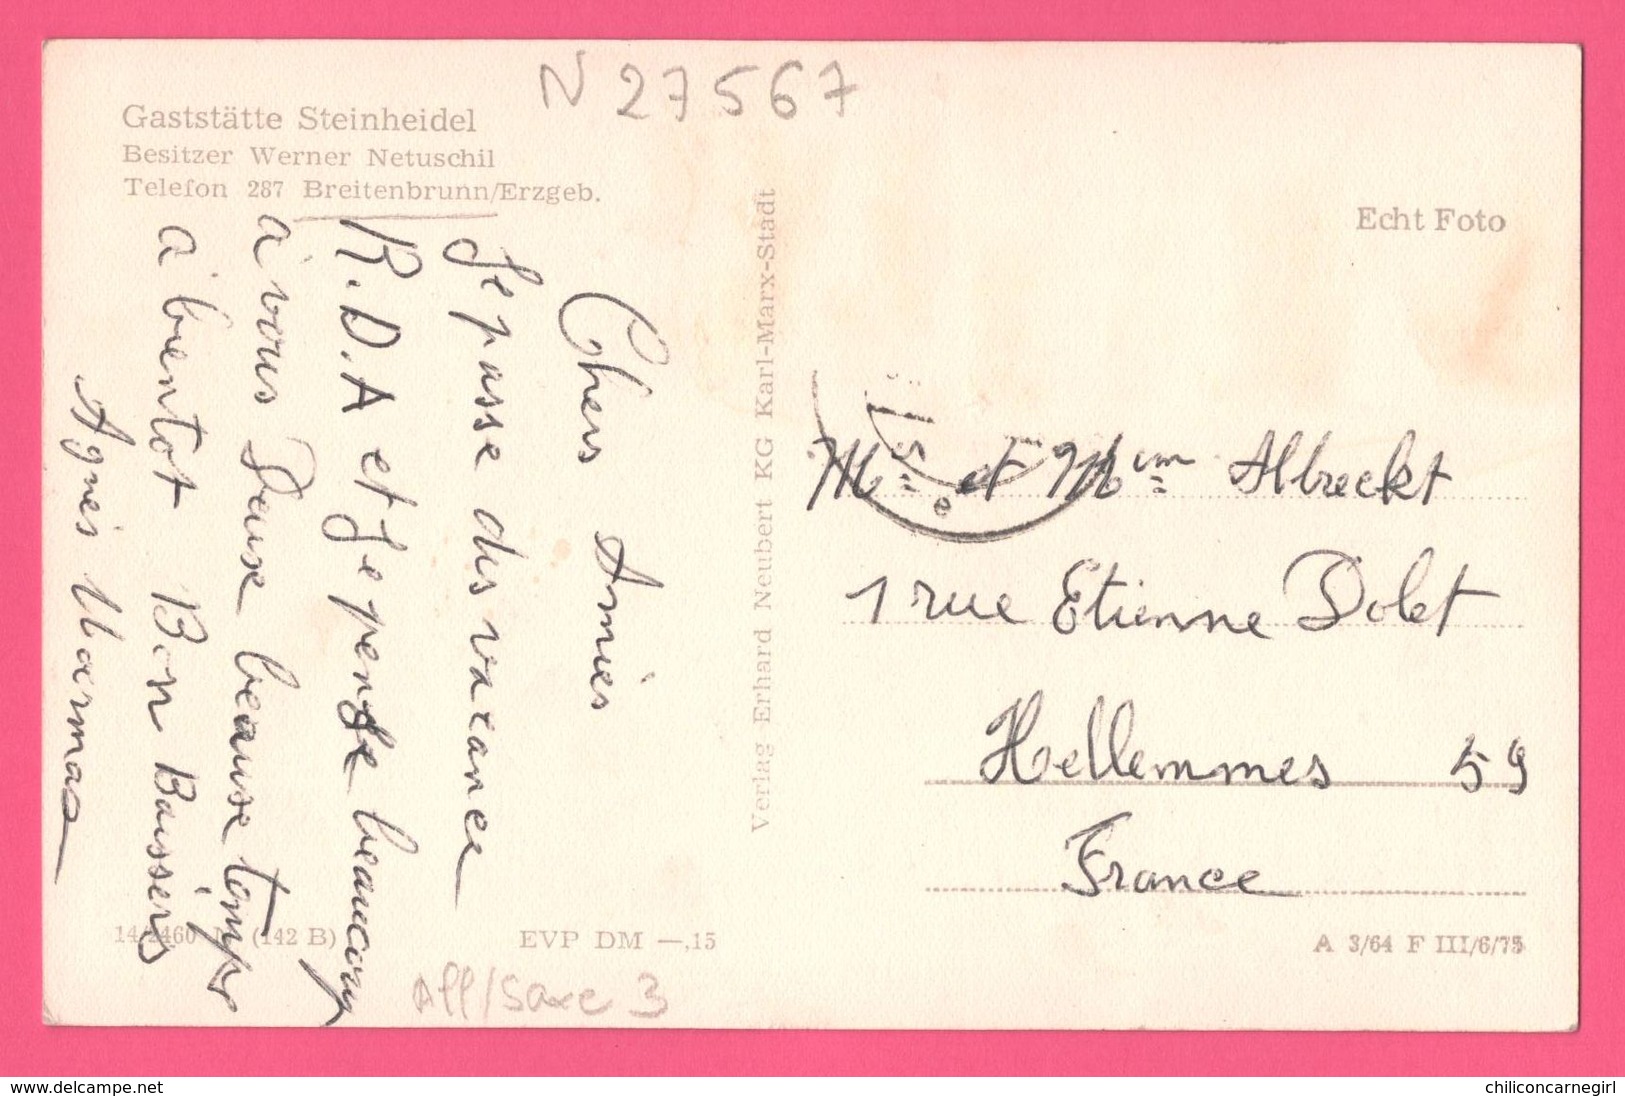 N 27567
Gaststätte Steinheidel
Besitzer Werner Netuschil
Telefon 287 Breitenbrunn/Erzgeb.
Chers Amies
Je passe des vacance
R.D.A et Je pense beaucoup
à vous Deuse beause temps
à bientot Bon Baissers
Agnès Marmas
Verlag Erhard Neubert KG Karl-Marx-Stadt
Echt Foto
Mr et Mme Albreckt
1 rue Etienne Dolet
Hellemmes 59
France
(142 B)
EVP DM —,15
A 3/64 F III/6/75
All/Saxe 3
www.delcampe.net
chiliconcarnegirl